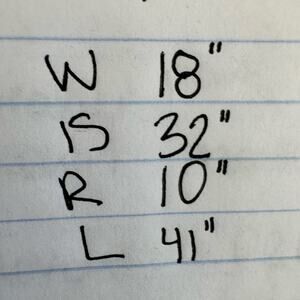 W 18"
IS 32"
R 10"
L 41"